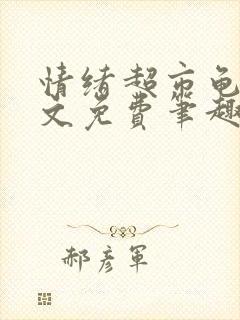 情绪超市龟
文免费笔趣
郝彦军